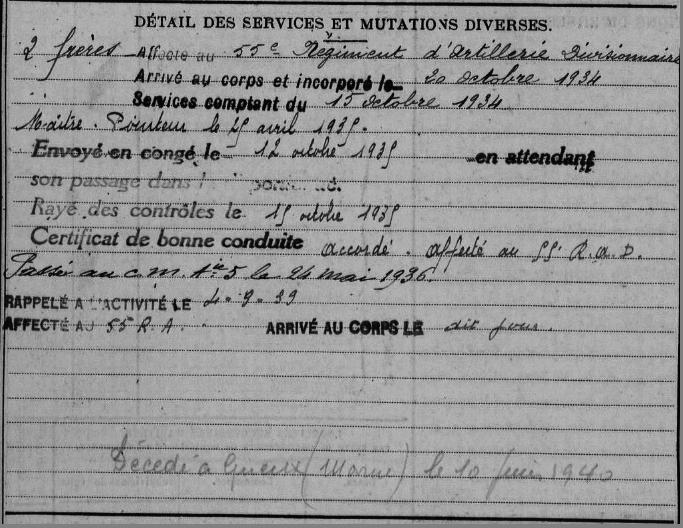 DÉTAIL DES SERVICES ET MUTATIONS DIVERSES.
2 frères Affecté au 55e Régiment d'Artillerie Divisionnaire
Arrivé au corps et incorporé le 20 octobre 1934
Services comptant du 15 octobre 1934
Maître-Pointeur le 25 avril 1935.
Envoyé en congé le 12 octobre 1935 en attendant
son passage dans l
Rayé des contrôles le 15 octobre 1935
Certificat de bonne conduite accordé. affecté au 55e R.A.D.
Passé au c.m. Aie 5 le 24 mai 1936
RAPPELÉ A L'ACTIVITÉ LE 4.9.39
AFFECTÉ AU 55 R.A. ARRIVÉ AU CORPS LE dit jour.
Décédé à Gueux (Marne) le 10 juin 1940